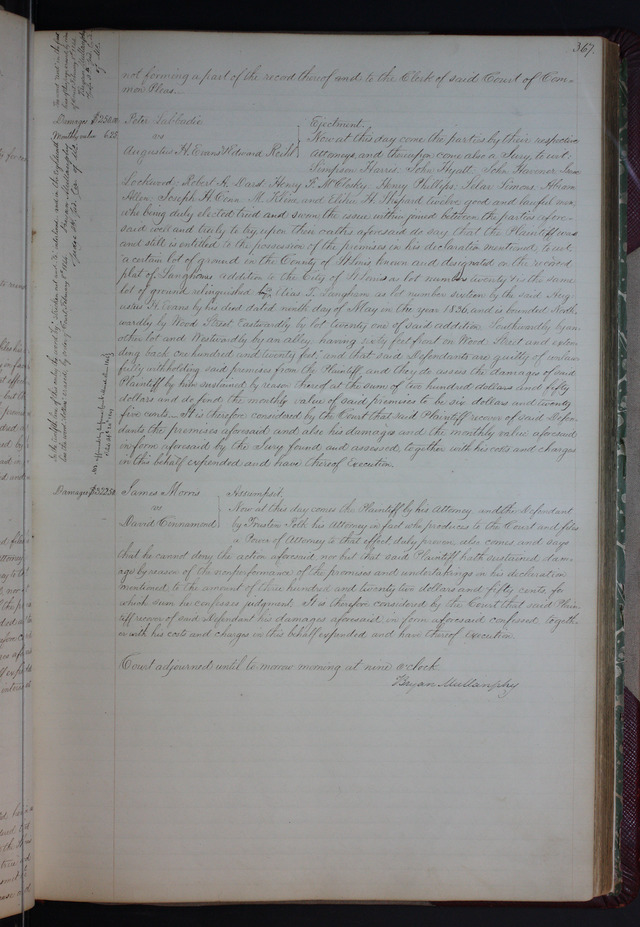 367.
not forming a part of the record thereof and to the Clerk of said Court of Com-
mon Pleas.
Damages $250.00
Monthly value 6.25
Peter Labbadie
vs
Augustus H. Evans & Edward Reihl
Ejectment.
Now at this day come the parties by their respective
Attorneys, and thereupon come also a Jury, to wit:
Simpson Harris, John Hyatt, John Havenor,
Lockwood, Robert A. Dard, Henry T. McClosky, Henry Phillips, Silas Simons, Abram
Allen, Joseph H. Conn, M. Kline, and Elihu H. Shepard twelve good and lawful men,
who being duly elected tried and sworn the issue within joined between the parties afore-
said well and truly to try, upon their oaths aforesaid do say that the Plaintiff was
and still is entitled to the possession of the premises in his declaration mentioned, to wit,
"a certain lot of ground in the County of St. Louis, known and designated on the record
plat of Langhams addition to the City of St. Louis as lot number twenty two the same
lot of ground relinquished by Elias T. Langham as lot number sixteen by the said Aug-
ustus H. Evans by his deed dated ninth day of May in the year 1836, and is bounded North-
wardly by Wood Street, Eastwardly by lot twenty one of said addition, Southwardly by an-
other lot and Westwardly by an alley, having sixty feet front on Wood Street and exten-
ding back one hundred and twenty feet," and that said Defendants are guilty of unlaw-
fully withholding said premises from the Plaintiff, and they do assess the damages of said
Plaintiff by him sustained by reason thereof at the sum of two hundred dollars and fifty
dollars and do find the monthly value of said premises to be six dollars and twenty
five cents. It is therefore considered by the Court that said Plaintiff recover of said Defen-
dants the premises aforesaid and also his damages and the monthly value aforesaid
in form aforesaid by the Jury found and assessed, together with his costs and charges
in this behalf expended and have thereof Execution.
Damages $322.50
James Morris
vs
David
Assumpsit.
Now at this day comes the Plaintiff by his Attorney and the Defendant
by Preston his Attorney in fact who produces to the Court and files
a Power of Attorney to that effect duly proven, also comes and says
that he cannot deny the action aforesaid, nor but that said Plaintiff hath sustained dam-
ages by reason of the nonperformance of the promises and undertakings in his declaration
mentioned to the amount of three hundred and twenty two dollars and fifty cents, for
which sum he confesses judgment. It is therefore considered by the Court that said Plain-
tiff recover of said Defendant his damages aforesaid in form aforesaid confessed, togeth-
er with his costs and charges in this behalf expended and have thereof execution.
Court adjourned until to morrow morning at nine o'clock
Bryan Mullanphy